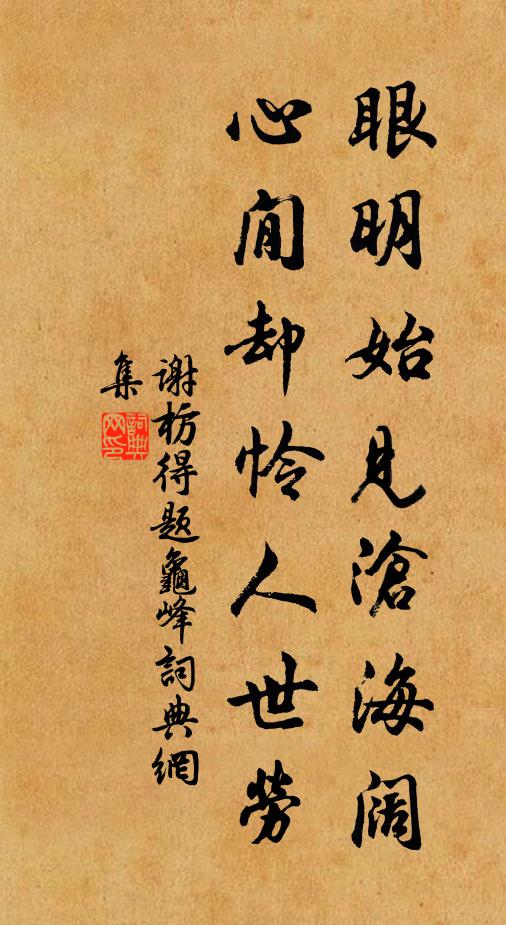 眼明始見滄海阔
心閒却怜人世勞
謝枋得題龜峰詞典網
集
詞典網印